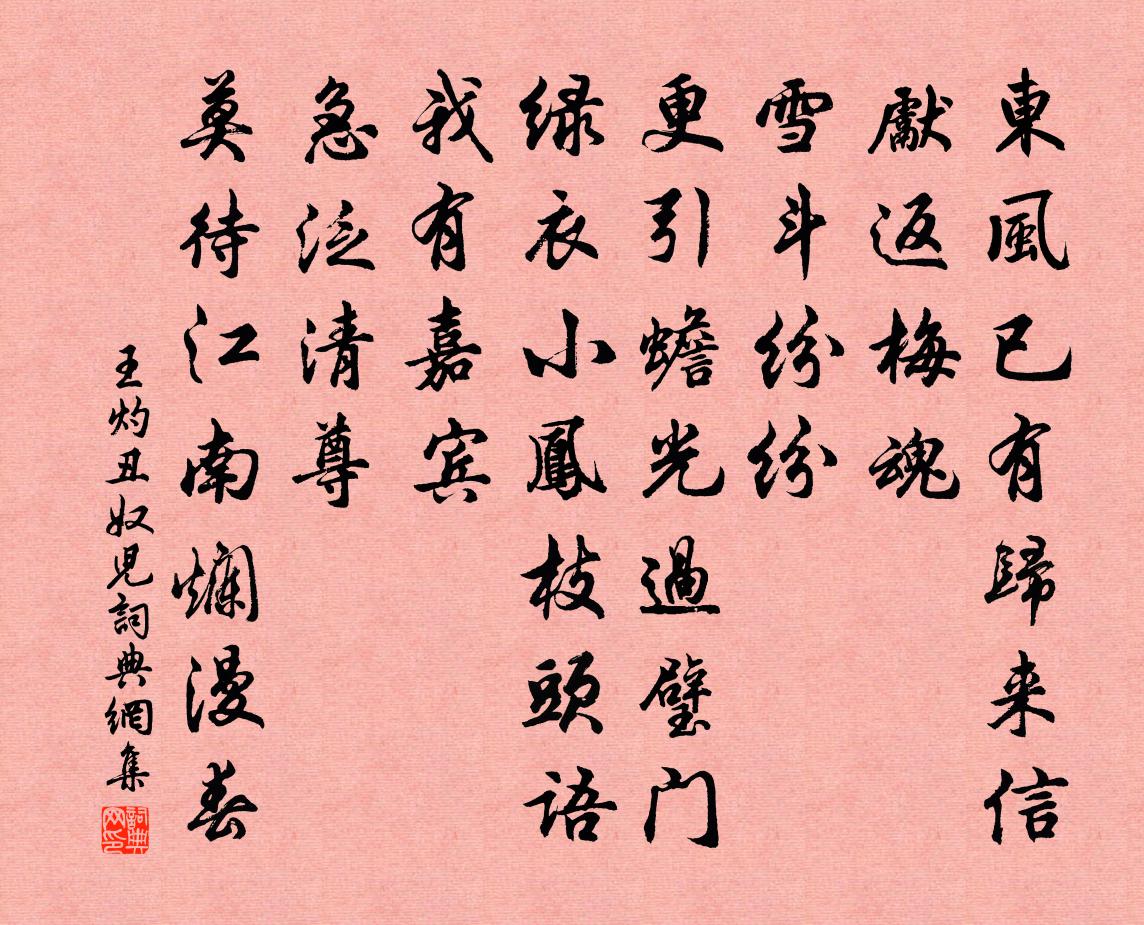 東風已有歸来信
獻返梅魂
雪斗紛紛
更引蟾光過璧门
緑衣小鳳枝頭語
我有嘉宾
急泛清尊
莫待江南爛漫春
王灼丑奴児詞典網集
詞典网印